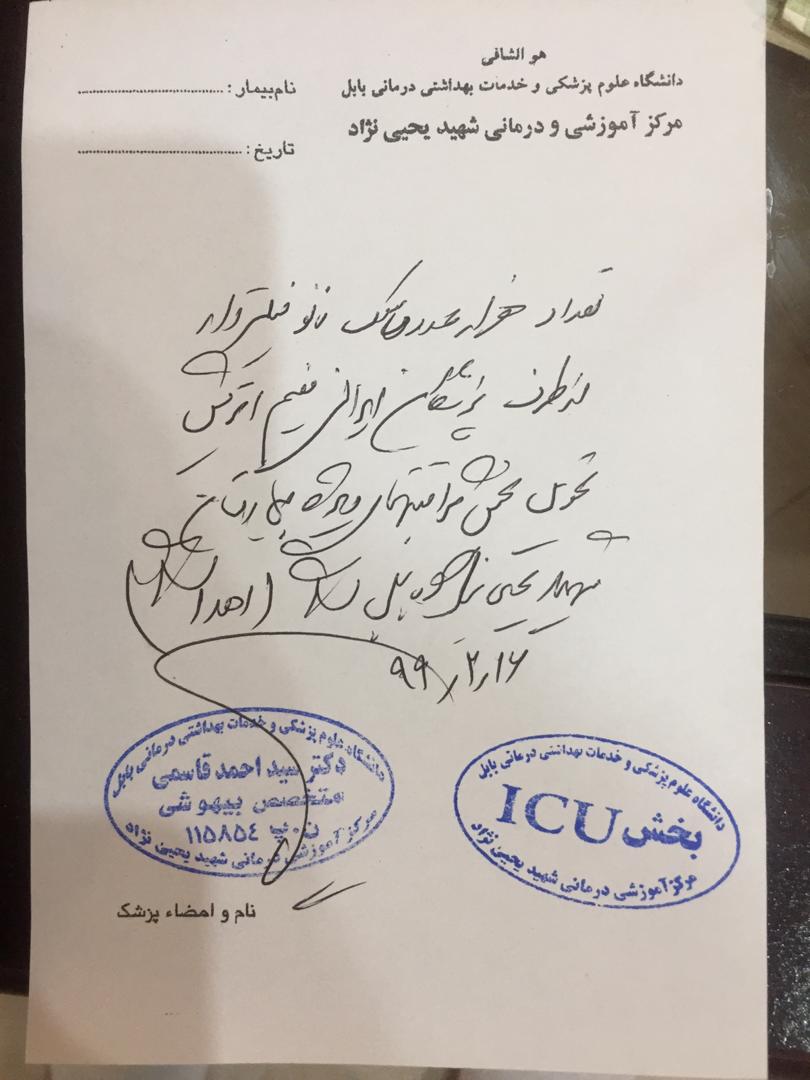 هو الشافی
دانشگاه علوم پزشکی و خدمات بهداشتی درمانی بابل
مرکز آموزشی و درمانی شهید یحیی نژاد
نام‌بیمار :
تاریخ :
تعداد هزار عدد ماسک نانو فیلتردار
از طرف پزشکان ایرانی مقیم اتریش
تحویل بخش مراقبتهای ویژه بیمارستان
شهید یحیی نژاد بابل اهدا
۹۹٫۲٫۱۶
دانشگاه علوم پزشکی و خدمات بهداشتی درمانی بابل
دکتر سید احمد قاسمی
متخصص بیهوشی
ن.پ ۱۱۵۸۵۴
مرکز آموزشی درمانی شهید یحیی نژاد
دانشگاه علوم پزشکی و خدمات بهداشتی درمانی بابل
بخش ICU
مرکز آموزشی درمانی شهید یحیی نژاد
نام و امضاء پزشک